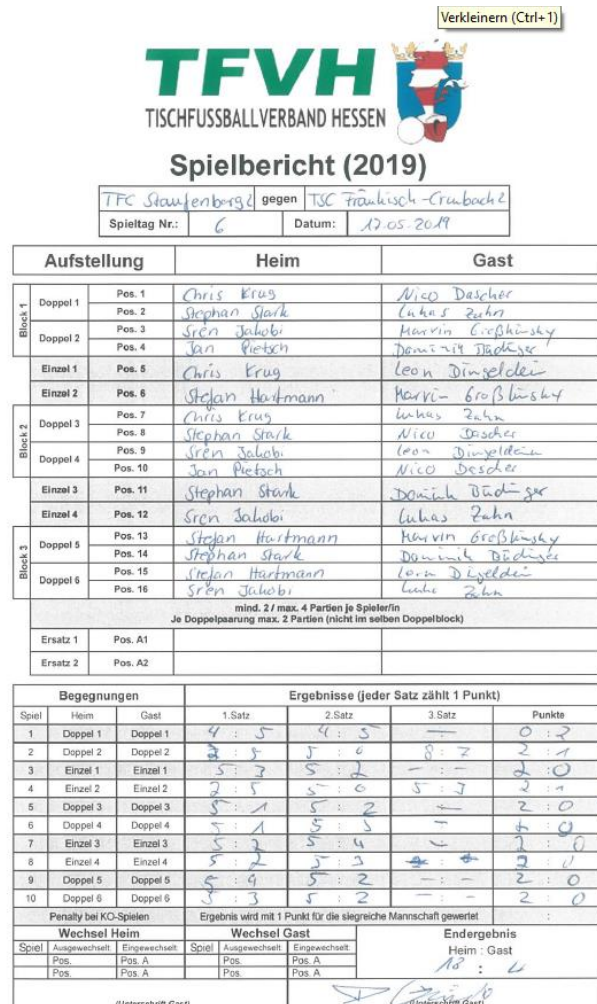 Verkleinern (Ctrl+1)
TFVH
TISCHFUSSBALLVERBAND HESSEN
Spielbericht (2019)
TFC Staufenberg 2 gegen TSC Fränkisch-Crumbach 2
Spieltag Nr.: 6 Datum: 17.05.2019
Aufstellung Heim Gast
Block 1
Doppel 1 Pos. 1 Chris Krug Nico Dascher
Pos. 2 Stephan Stark Lukas Zahn
Doppel 2 Pos. 3 Sren Jakobi Marvin
Pos. 4 Jan Pietsch Dominik Büdinger
Einzel 1 Pos. 5 Chris Krug Leon Dingeldein
Einzel 2 Pos. 6 Stefan Hartmann Marvin Großlinsky
Block 2
Doppel 3 Pos. 7 Chris Krug Lukas Zahn
Pos. 8 Stephan Stark Nico Dascher
Doppel 4 Pos. 9 Sren Jakobi Leon Dingeldein
Pos. 10 Jan Pietsch Nico Dascher
Einzel 3 Pos. 11 Stephan Stark Dominik Büdinger
Einzel 4 Pos. 12 Sren Jakobi Lukas Zahn
Block 3
Doppel 5 Pos. 13 Stefan Hartmann Marvin Großlinsky
Pos. 14 Stephan Stark Dominik Büdinger
Doppel 6 Pos. 15 Stefan Hartmann Leon
Pos. 16 Sren Jakobi Zahn
mind. 2 / max. 4 Partien je Spieler/in
Je Doppelpaarung max. 2 Partien (nicht im selben Doppelblock)
Ersatz 1 Pos. A1
Ersatz 2 Pos. A2
Begegnungen Ergebnisse (jeder Satz zählt 1 Punkt)
Spiel Heim Gast 1.Satz 2.Satz 3.Satz Punkte
1 Doppel 1 Doppel 1 4 : 5 4 : 5 — 0 : 2
2 Doppel 2 Doppel 2 : 5 5 : 0 8 : 7 2 : 1
3 Einzel 1 Einzel 1 5 : 3 5 : 2 - : - 2 : 0
4 Einzel 2 Einzel 2 2 : 5 5 : 0 5 : 3 2 : 1
5 Doppel 3 Doppel 3 5 : 1 5 : 2 — 2 : 0
6 Doppel 4 Doppel 4 5 : 1 5 : 3 — : 0
7 Einzel 3 Einzel 3 5 : 2 5 : 4 — 2 : 0
8 Einzel 4 Einzel 4 5 : 2 5 : 3 : 2 : 0
9 Doppel 5 Doppel 5 5 : 4 5 : 2 - : - 2 : 0
10 Doppel 6 Doppel 6 5 : 3 5 : 2 - : - 2 : 0
Penalty bei KO-Spielen Ergebnis wird mit 1 Punkt für die siegreiche Mannschaft gewertet :
Wechsel Heim Wechsel Gast Endergebnis
Spiel Ausgewechselt: Eingewechselt: Spiel Ausgewechselt: Eingewechselt: Heim : Gast
Pos. Pos. A Pos. Pos. A 18 : 4
Pos. Pos. A Pos. Pos. A
(Unterschrift Gast) (Unterschrift Gast)